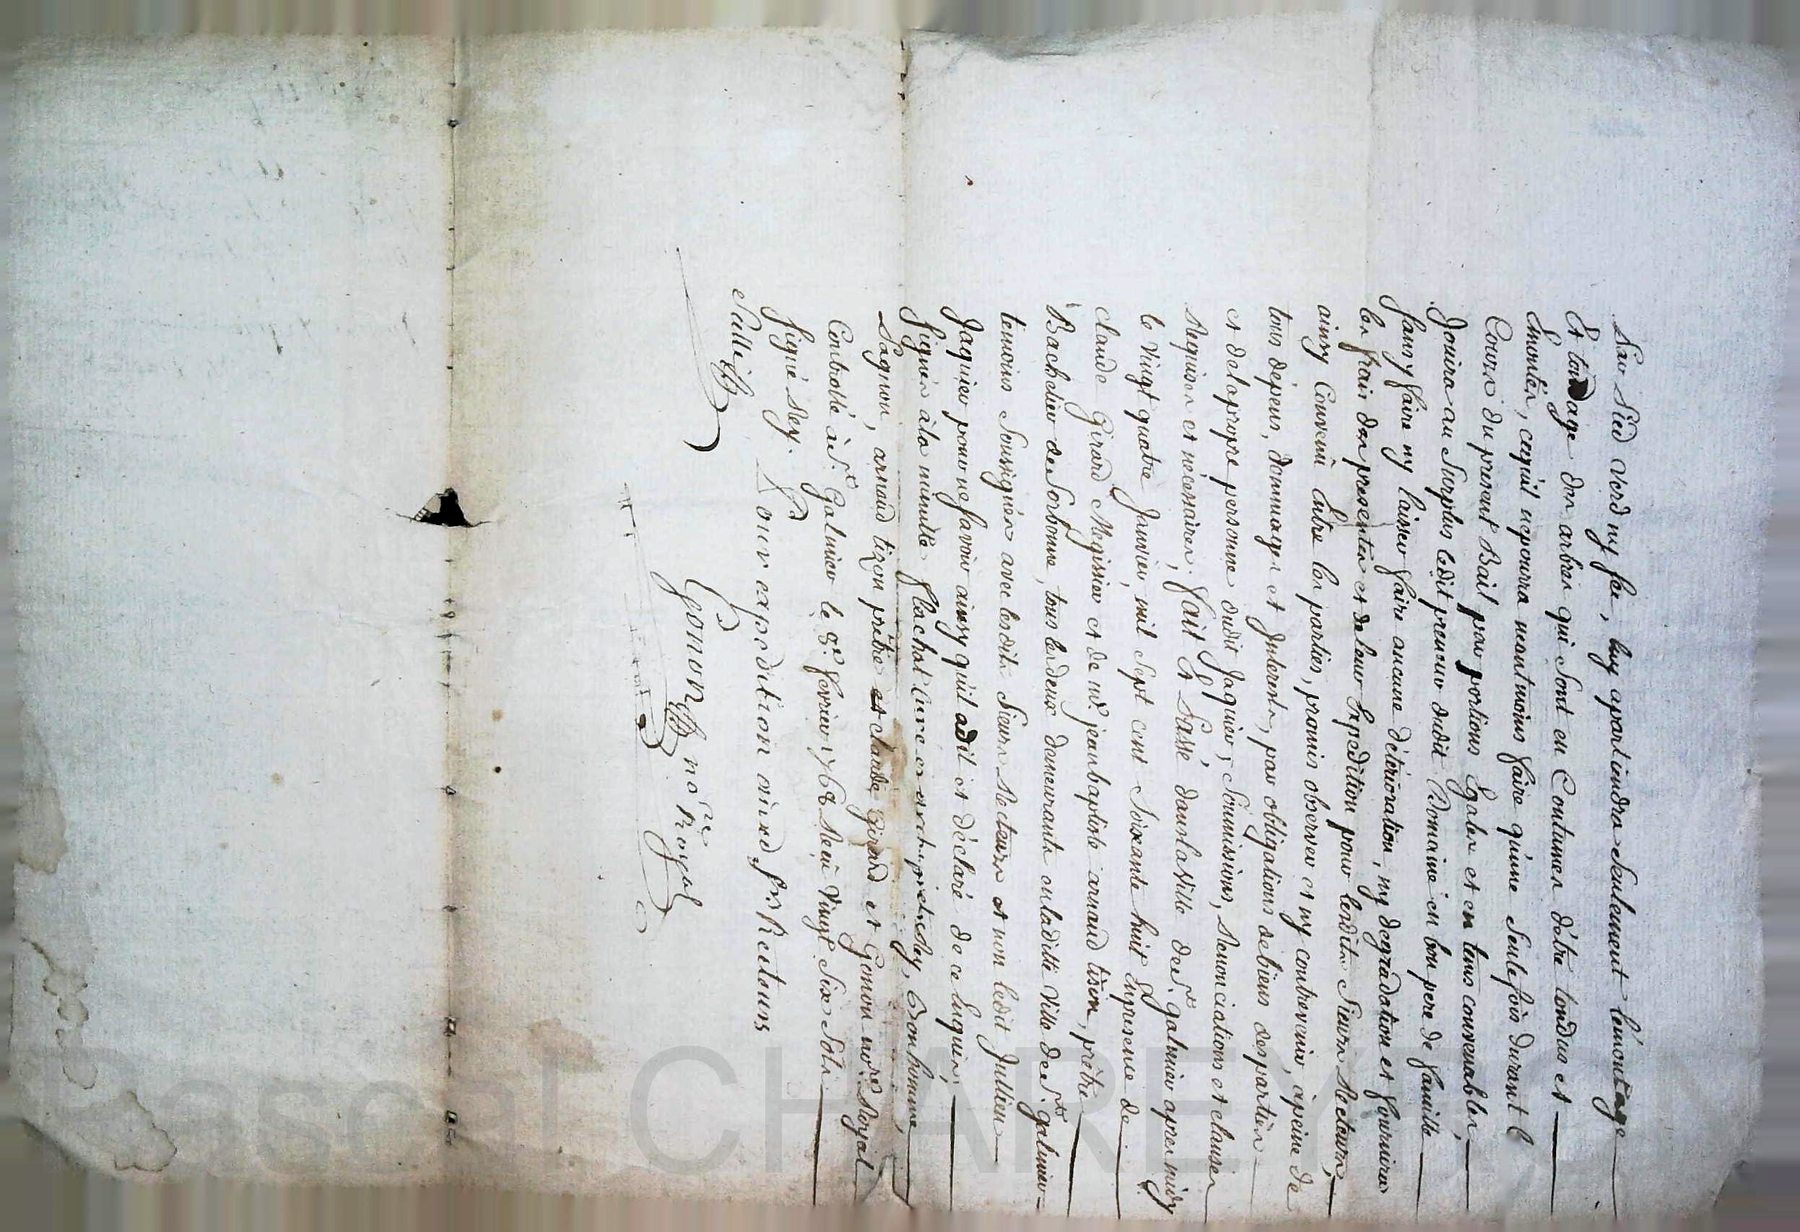 par Pied verd ny sec, luy apartiendra seulement l'émontage
Et tondage des arbres qui sont en Coutumes d'être tondus et
Emontés, cequ'il nepourra neantmoins faire qu'une seule fois durant le
Cours du present Bail par portions Egales et en tems convenables,
Jouira au Surplus ledit preneur dudit Domaine en bon pere de famille
sans y faire ny laisser faire aucune détérioration, ny degradation et fournira
les frais des presentes et de leur Expédition pour lesdits Sieurs Recteurs,
ainsy Convenû Entre les parties, promis observer et ny contrevenir, apeine de
tous dépens, dommages et Interests, par obligations de biens desparties
et delapropre personne dudit Jaquier, Soumissions, Renonciations et clauses
Requises et nécessaires; fait et Passé dans laVille de St. galmier apres midy
le Vingt quatre Janvier, mil Sept cent Soixante huit En presence de
claude Girard Megissier et de me. jean baptiste arnaud tison, prêtre
Bachelier de Sorbonne, tous les deux demeurants enladitte Ville de St. galmier
temoins Soussignés avec lesdits Sieurs Recteurs et non ledit Jullien
Jaquier pour nesavoir ainsy qu'il adit et déclaré de ce Enquis,
Signés à la minutte flachat Curé et archiprêtre, Bonhomme,
Pagnon, arnaud tizon prêtre et claude Girard et Gonon no.re Royal
Controllé à St. Galmier le 8e. fevrier 1768 Reçu Vingt Six Sols
Signé Rey.
Pour expédition auxd. srs Recteurs
Gonon no.re Royal
Pascal CHAREYRON